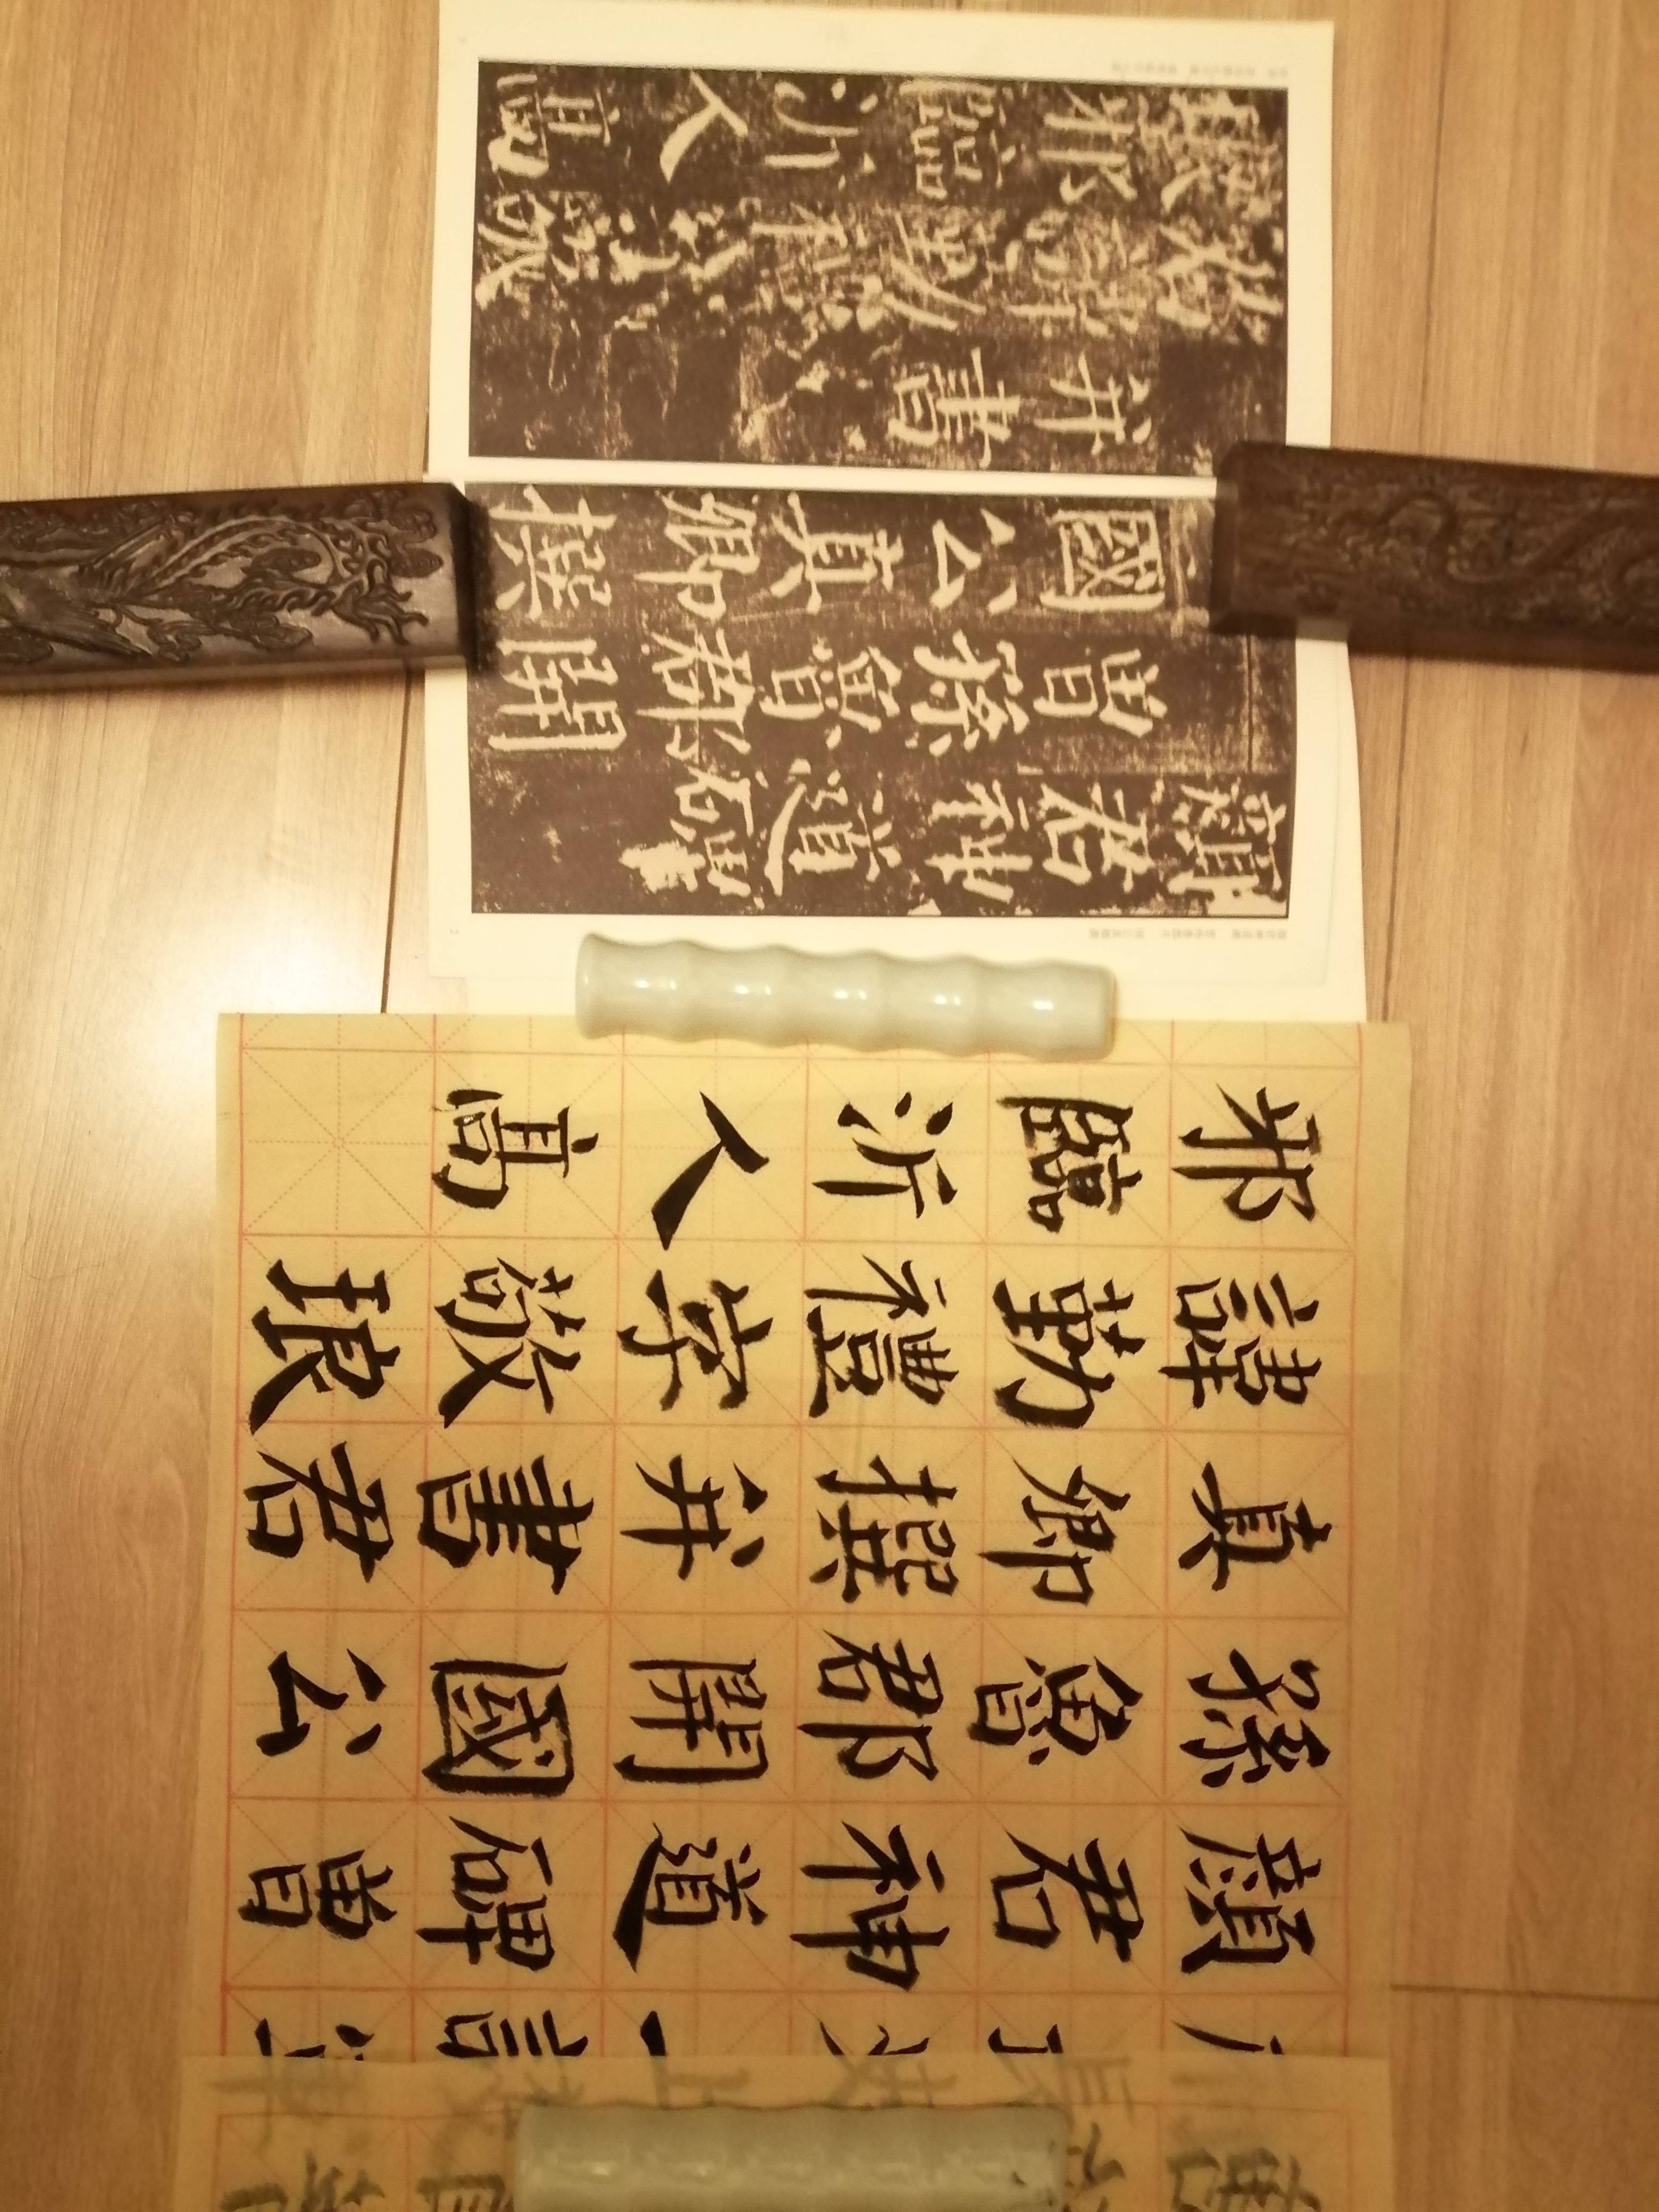 顏君神道碑
曾孫魯郡開
國公真卿撰
并書
君諱勤禮字敬
琅邪臨沂人高
顏君神道碑曾
孫魯郡開國公
真卿撰并書君
諱勤禮字敬琅
邪臨沂人高